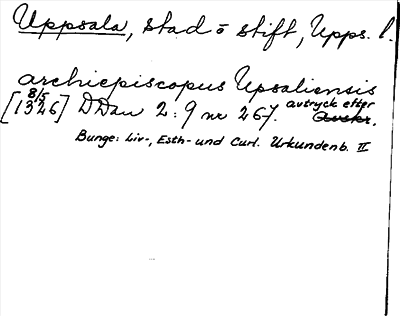 Uppsala, stad o stift, Upps. l.
archiepiscopus Upsaliensis
8/5
[1326] DDan 2:9 nr 267. avtryck efter
Bunge: Liv-, Esth- und Curl. Urkundenb. II